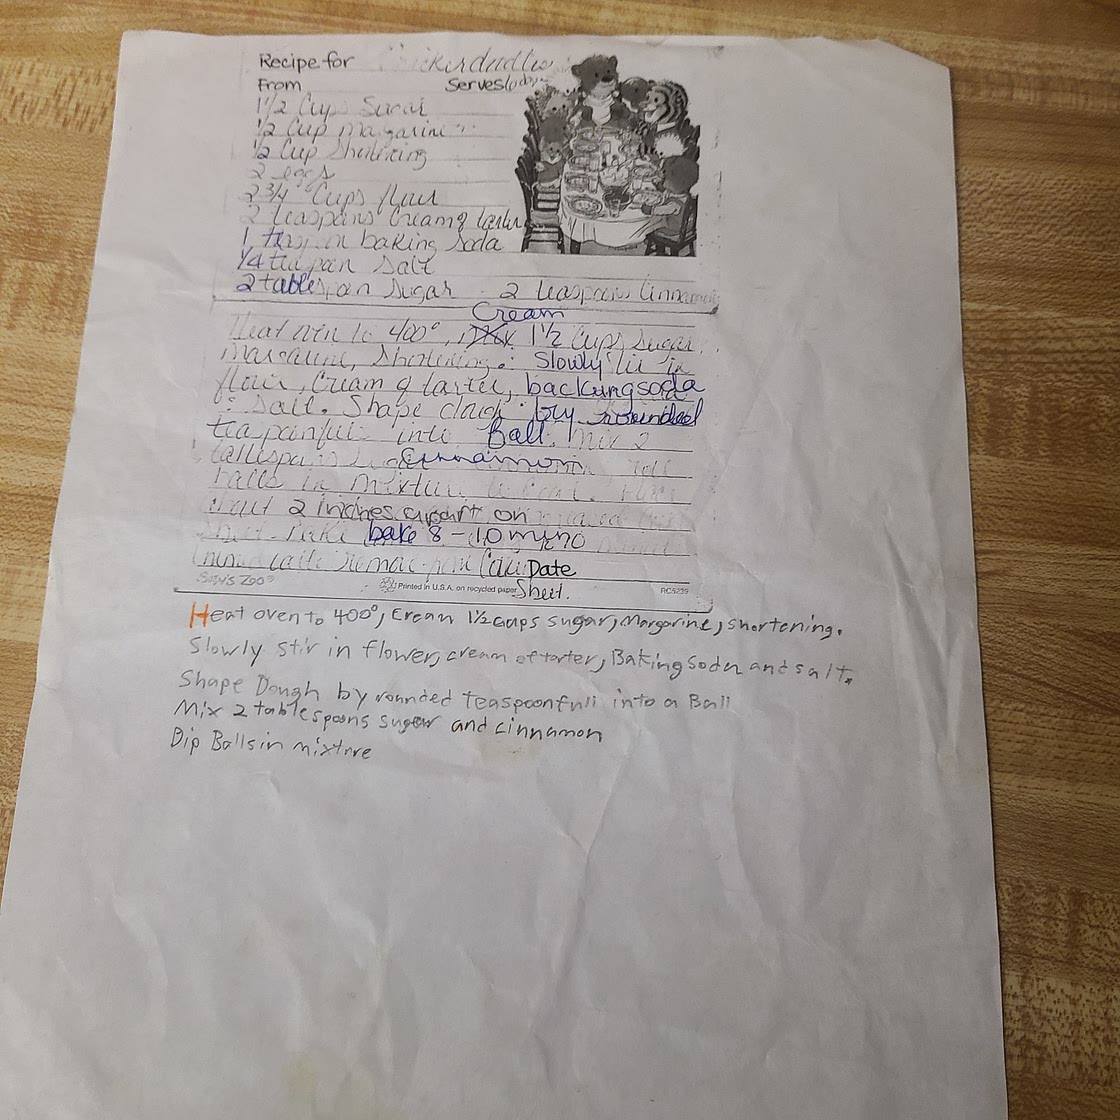 Recipe for Snickerdudles
From Serves
1 1/2 Cups Sugar
1/2 Cup Margarine
1/2 Cup Shortening
2 eggs
2 3/4 Cups flour
2 teaspoons Cream of tartar
1 teaspoon baking soda
1/4 teaspoon Salt
2 tablespoon Sugar - 2 teaspoons Cinnamon
Cream
Heat oven to 400°, mix 1 1/2 Cups Sugar,
Margarine, Shortening. Slowly stir in
flour, Cream of tartar, backingsoda
Salt. Shape dough by rounded
teaspoonfuls into Ball. Mix 2
tablespoons Cinnamon roll
balls in mixture
about 2 inches apart on
Sheet. Bake bake 8-10 mino
Date
Sheet.
Suzy's Zoo® Printed in U.S.A. on recycled paper RC5239
Heat oven to 400°, Cream 1 1/2 cups sugar, Margarine, shortening.
Slowly stir in flower, cream of tarter, Baking Soda and salt.
Shape Dough by rounded teaspoonfull into a Ball
Mix 2 tablespoons sugar and cinnamon
Dip Balls in mixture